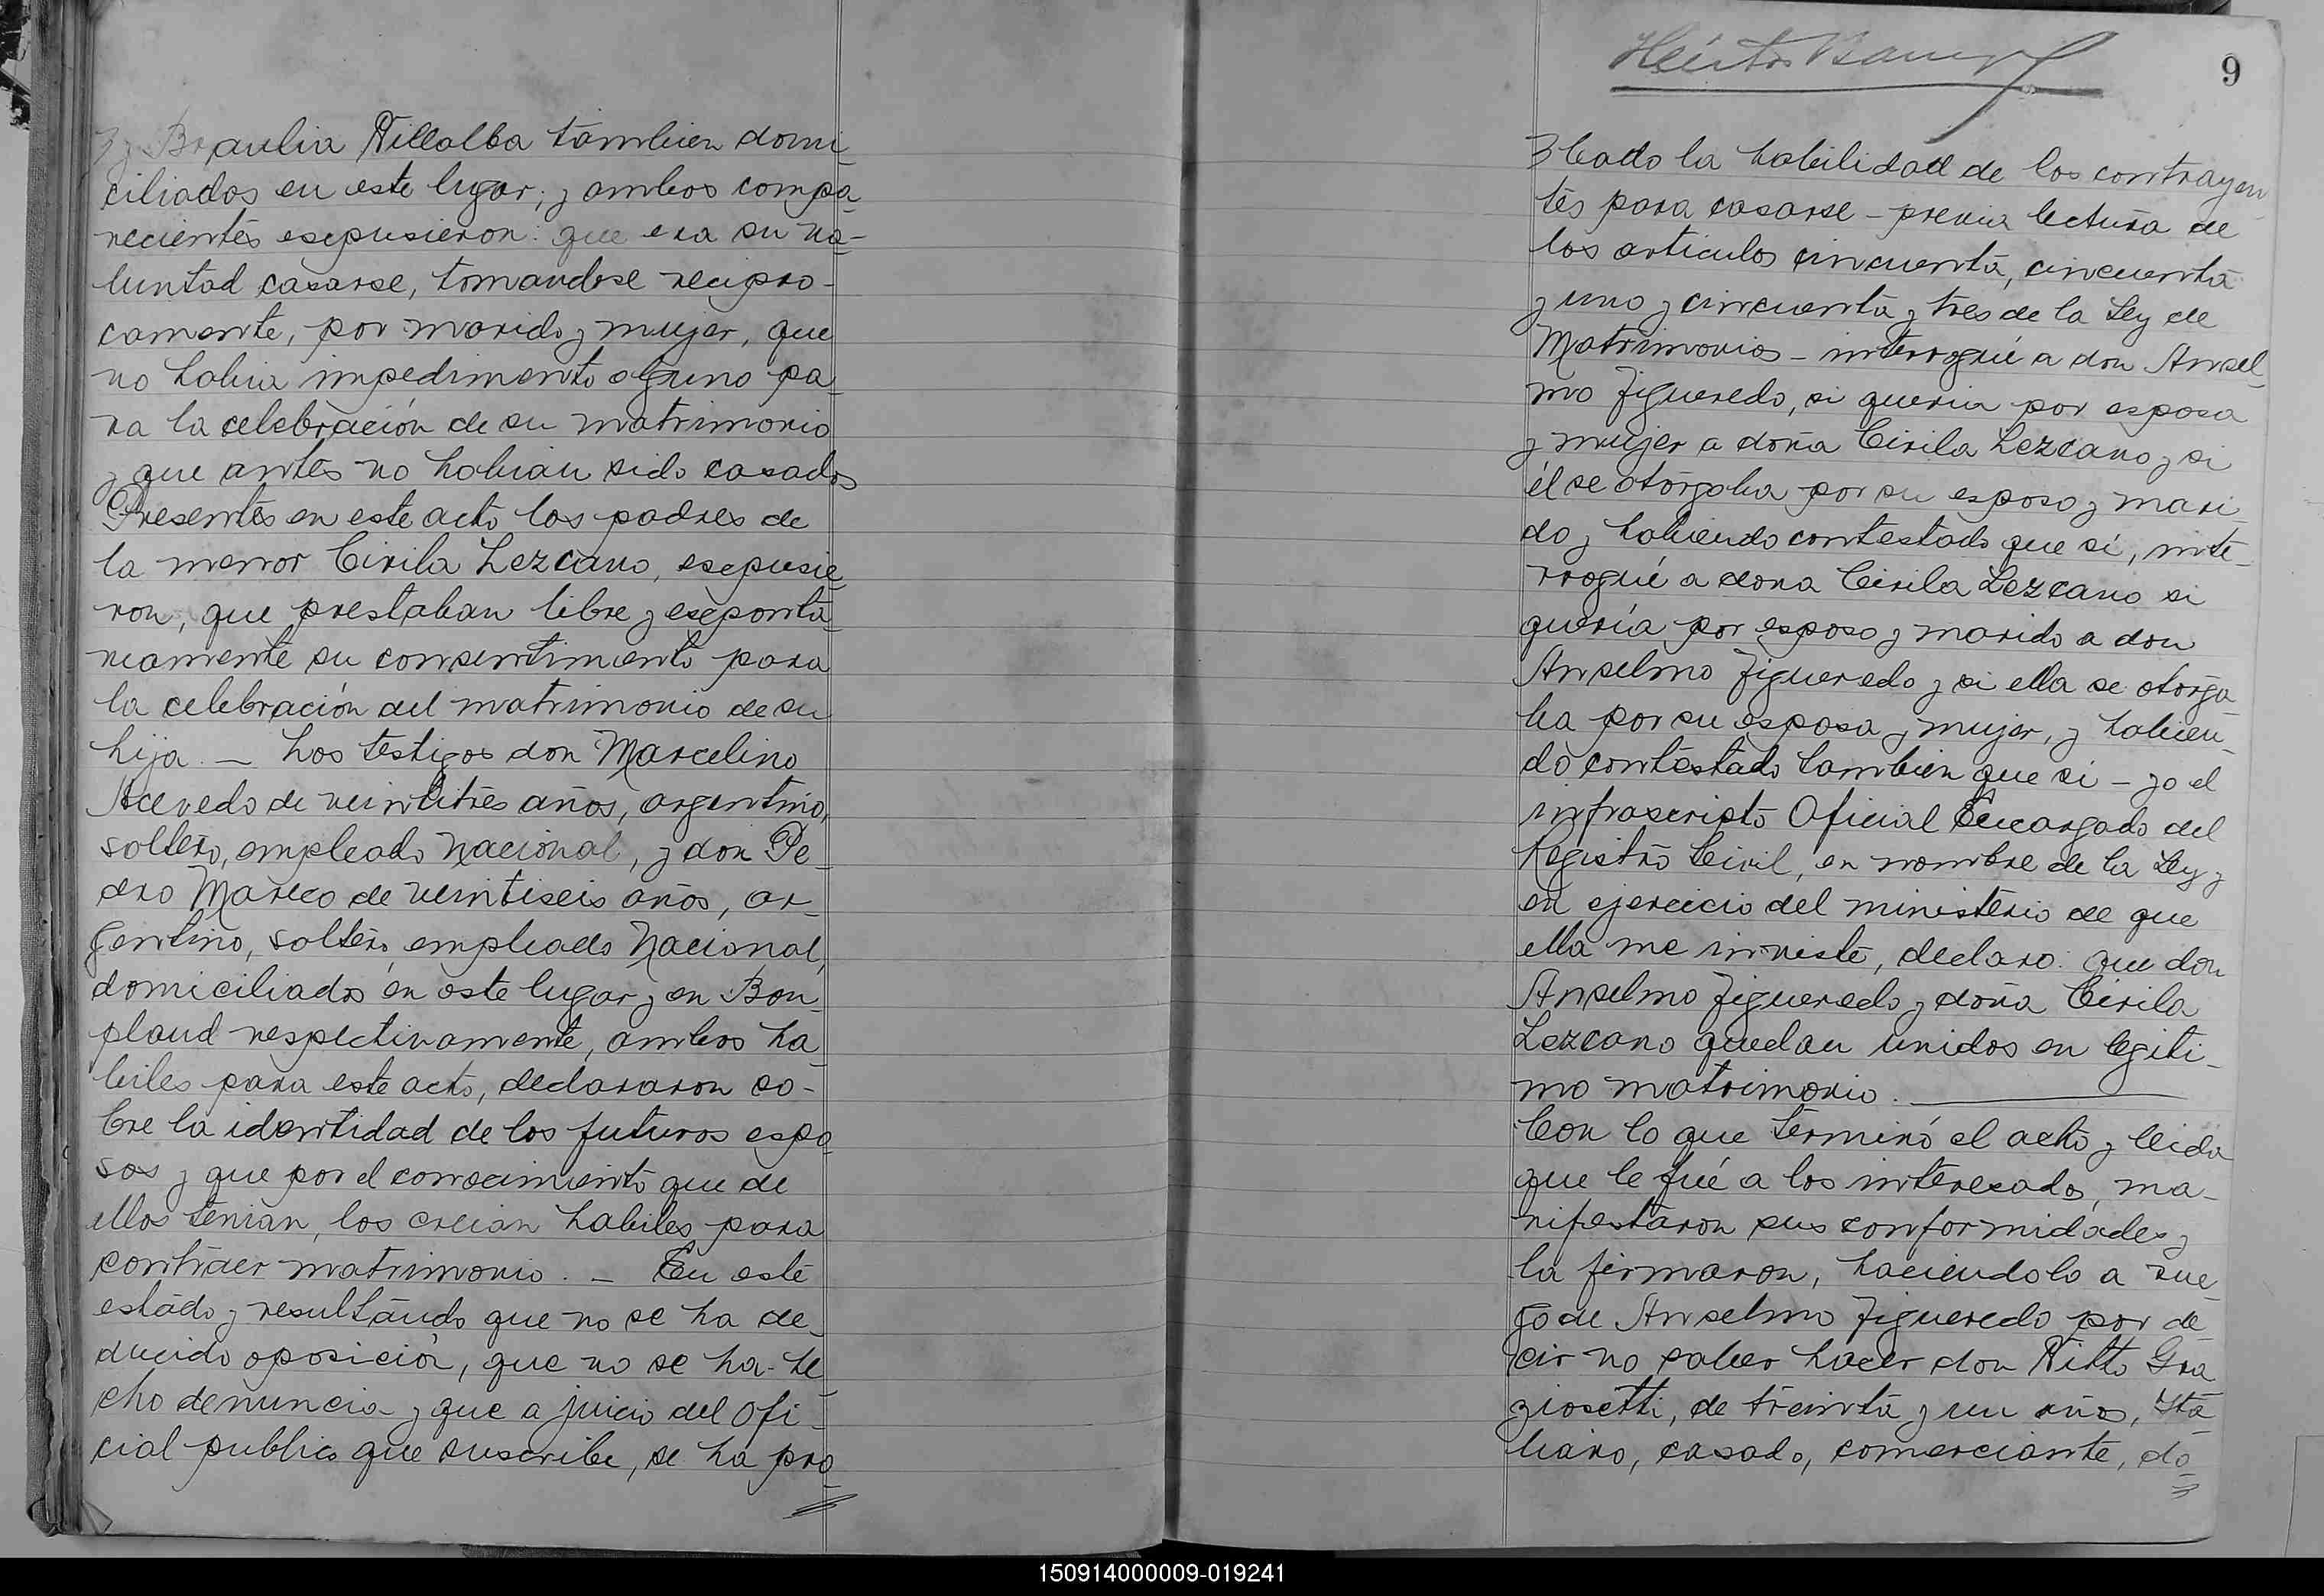 y Braulia Villalba tambien domi-
ciliados en este lugar; y ambos compa-
recientes esepusieron: que era su vo-
luntad casarse, tomandose recipro-
camente, por marido y mujer, que
no habia impedimento alguno pa-
ra la celebración de su matrimonio
y que antes no habian sido casados
Presentes en este acto los padres de
la menor Cirila Lezcano, esepusie-
ron, que prestaban libre y eseponta-
neamente su consentimiento para
la celebración del matrimonio de su
hija. — Los testigos don Marcelino
Acevedo de veintitres años, argentino,
soltero, empleado Nacional, y don Pe-
dro Mareco de veintiseis años, ar-
gentino, soltero, empleado Nacional,
domiciliados en este lugar y en Bon-
pland respectivamente, ambos ha-
biles para este acto, declararon so-
bre la identidad de los futuros espo-
sos y que por el conocimiento que de
ellos tenian, los creian habiles para
contraer matrimonio. — En este
estado y resultando que no se ha de-
ducido oposición, que no se ha he-
cho denuncia y que a juicio del Ofi-
cial publico que suscribe, se ha pro-
Héctor
9
bado la habilidad de los contrayen-
tes para casarse - previa lectura de
los articulos cincuenta, cincuenta
y uno y cincuenta y tres de la Ley de
Matrimonios - interrogué a don Ansel-
mo Figueredo, si queria por esposa
y mujer a doña Cirila Lezcano y si
él se otorgaba por su esposo y mari-
do y habiendo contestado que si, inte-
rrogué a dona Cirila Lezcano si
quería por esposo y marido a don
Anselmo Figueredo y si ella se otorga-
ba por su esposa y mujer, y habien-
do contestado tambien que si - yo el
infrascripto Oficial Encargado del
Registro Civil, en nombre de la Ley y
en ejercicio del ministerio de que
ella me inviste, declaro: que don
Anselmo Figueredo y doña Cirila
Lezcano quedan unidos en legiti-
mo matrimonio. —
Con lo que terminó el acto y leida
que le fué a los interesados, ma-
nifestaron sus conformidades y
la firmaron, haciendolo a rue-
go de Anselmo Figueredo por de-
cir no saber hacer don Vitto Gra-
ziosetti, de treinta y un años, Ita-
liano, casado, comerciante, do-
150914000009-019241